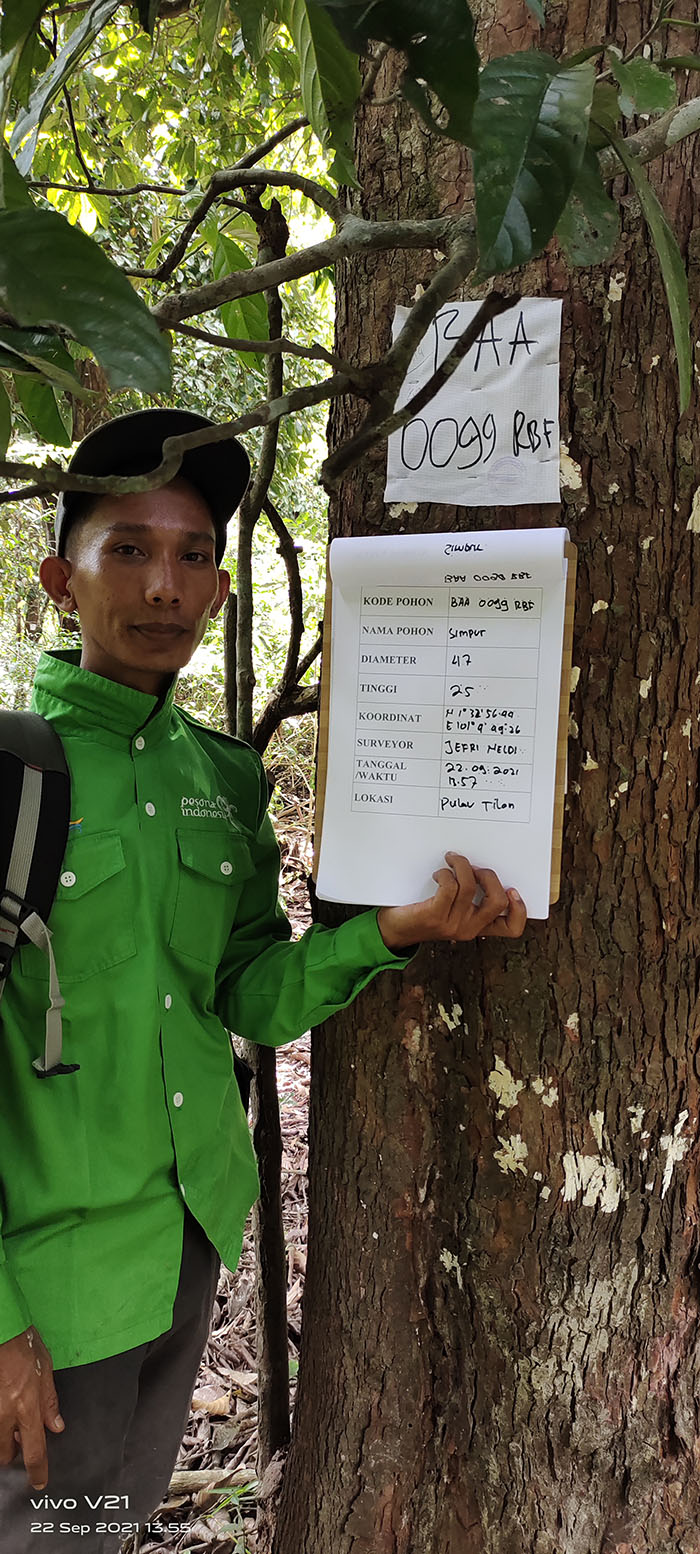 BAA
0099 RBF
KODE POHON BAA 0099 RBF
NAMA POHON Simpur
DIAMETER 47
TINGGI 25
KOORDINAT N 1° 32' 56.44
E 101° 9' 49.26
SURVEYOR JEFRI MELDI
TANGGAL 22.09.2021
/WAKTU
LOKASI Pulau Tilan
pesona
indonesia
vivo V21
22 Sep 2021 13:55